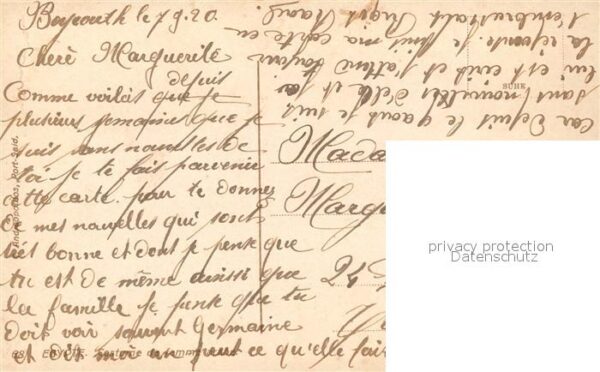 Beyrouth le 7.9.20.
Chere Marguerite
depuis
Comme voilàs que je
plusieurs semaines que je
suis sans nouvelles de
toi je te fais parvenir
cette carte pour te donner
de mes nouvelles qui sont
très bonne et dont je pense que
tu est de même ainsi que
la famille je pense que tu
doit voir souvent Germaine
et dit moi un peut ce qu'elle fait
car depuit le 9 aout je suis
sans nouvelles d'elle et j'ai
lui est ecrit et j'attend toujour
la réponse. je finis ma carte en
t'embrassant
Mada
Margu
24
SUHE
Port-Said.
EGYPTE
privacy protection
Datenschutz